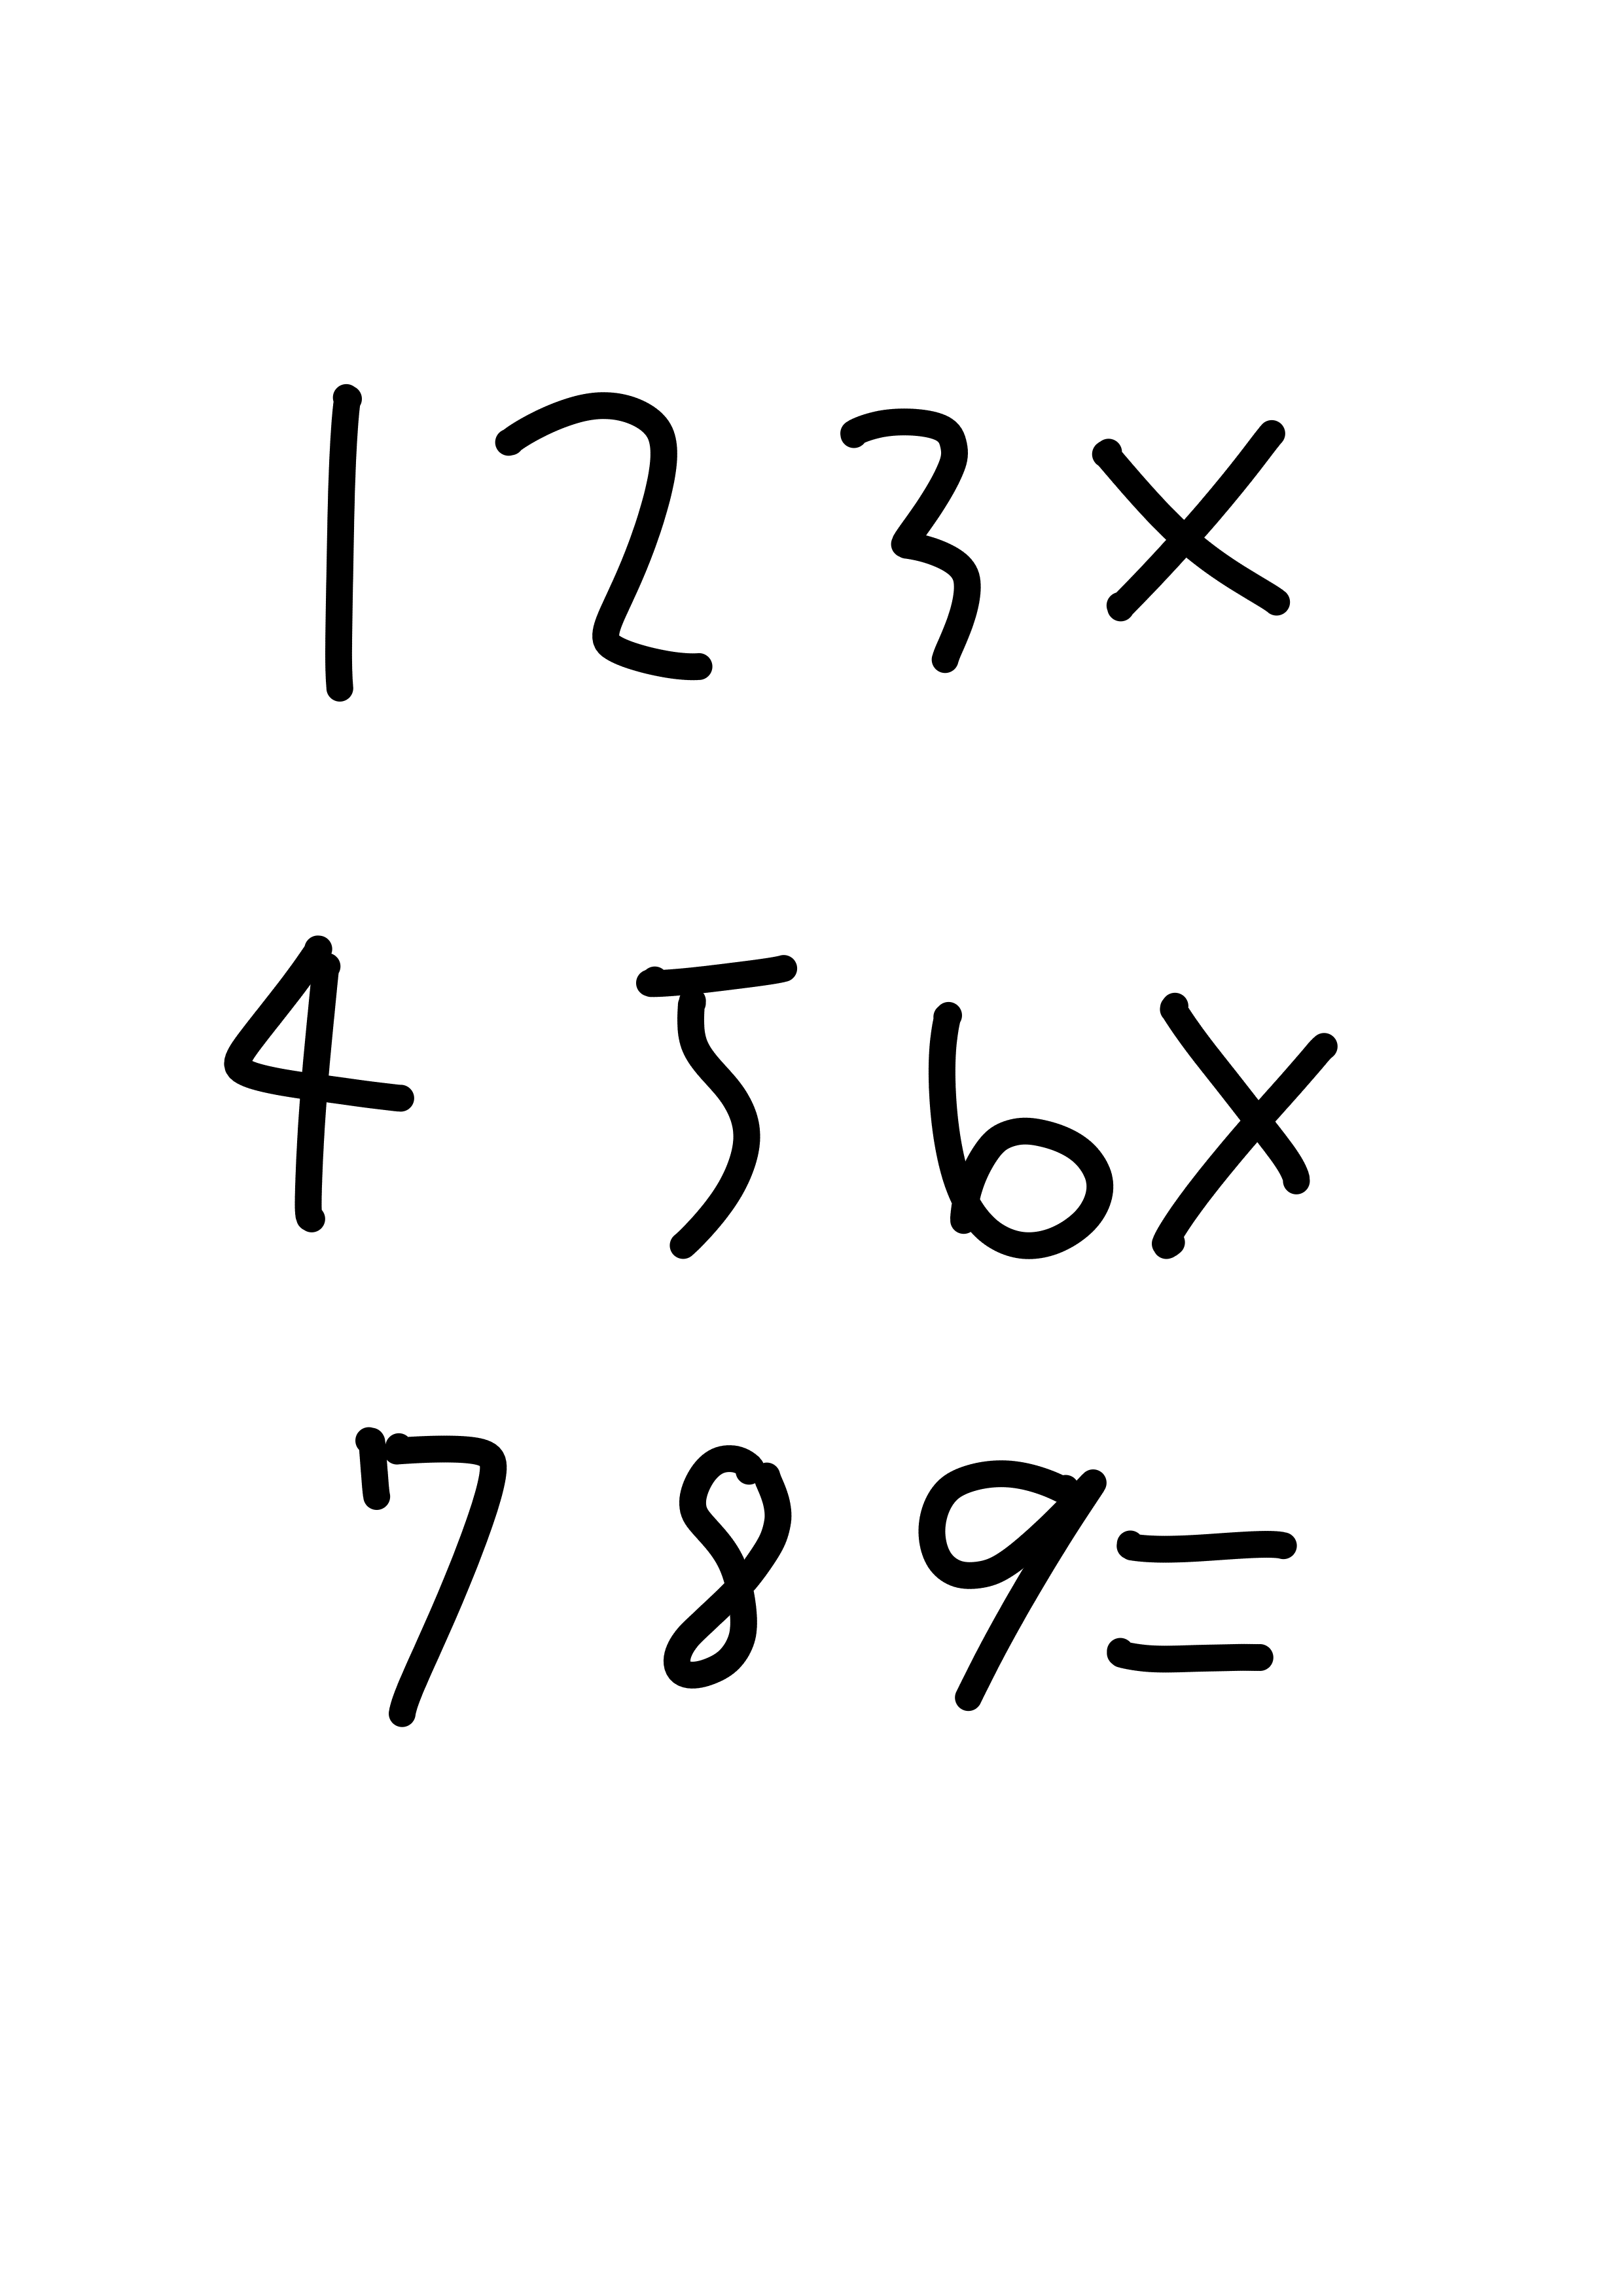 123×
456×
789=